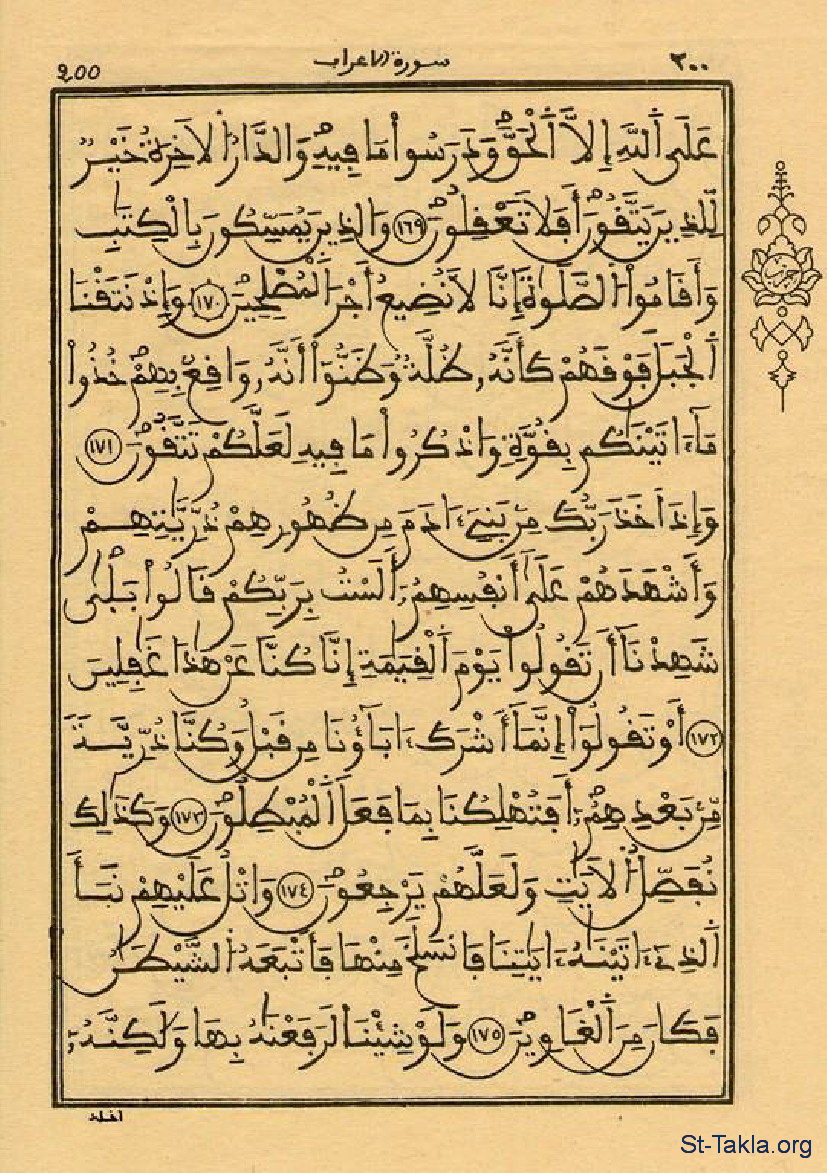 ٢٠٠ سورة الاعراف 200
عَلَى اَللَّهِ إِلاَّ اَلْحَقَّ وَدَرَسُواْ مَا فِيهِ وَالدَّارُ اُلاَخِرَةُ خَيْرٌ
لِّلذِينَ يَتَّقُونَ أَفَلاَ تَعْقِلُونَ ١٦٩ وَالذِينَ يُمَسِّكُونَ بِالْكِتَٰبِ
وَأَقَامُواْ اُلصَّلَوٰةَ إِنَّا لاَ نُضِيعُ أَجْرَ اَلْمُصْلِحِينَ ١٧٠ وَإِذ نَّتَقْنَا
اَلْجَبَلَ فَوْقَهُمْ كَأَنَّهُۥ ظُلَّةٌ وَظَنُّوٓاْ أَنَّهُۥ وَاقِعٌۢ بِهِمْ خُذُواْ
مَآ ءَاتَيْنَٰكُم بِقُوَّةٍ وَاذْكُرُواْ مَا فِيهِ لَعَلَّكُمْ تَتَّقُونَ ١٧١
وَإِذَ اَخَذَ رَبُّكَ مِنۢ بَنِےٓ ءَادَمَ مِن ظُهُورِهِمْ ذُرِّيَّٰتِهِمْ
وَأَشْهَدَهُمْ عَلَىٰٓ أَنفُسِهِمُۥٓ أَلَسْتُ بِرَبِّكُمْ قَالُواْ بَلَىٰ
شَهِدْنَآ أَن تَقُولُواْ يَوْمَ اَلْقِيَٰمَةِ إِنَّا كُنَّا عَنْ هَٰذَا غَٰفِلِينَ
١٧٢ أَوْ تَقُولُوٓاْ إِنَّمَآ أَشْرَكَ ءَابَآؤُنَا مِن قَبْلُ وَكُنَّا ذُرِّيَّةً
مِّنۢ بَعْدِهِمُۥٓ أَفَتُهْلِكُنَا بِمَا فَعَلَ اَلْمُبْطِلُونَ ١٧٣ وَكَذَٰلِكَ
نُفَصِّلُ اُلاَيَٰتِ وَلَعَلَّهُمْ يَرْجِعُونَ ١٧٤ وَاتْلُ عَلَيْهِمْ نَبَأَ
اَلذِےٓ ءَاتَيْنَٰهُ ءَايَٰتِنَا فَانسَلَخَ مِنْهَا فَأَتْبَعَهُ اُلشَّيْطَٰنُ
فَكَانَ مِنَ اَلْغَاوِينَ ١٧٥ وَلَوْ شِئْنَا لَرَفَعْنَٰهُ بِهَا وَلَٰكِنَّهُۥٓ
أخلد
حزب
St-Takla.org